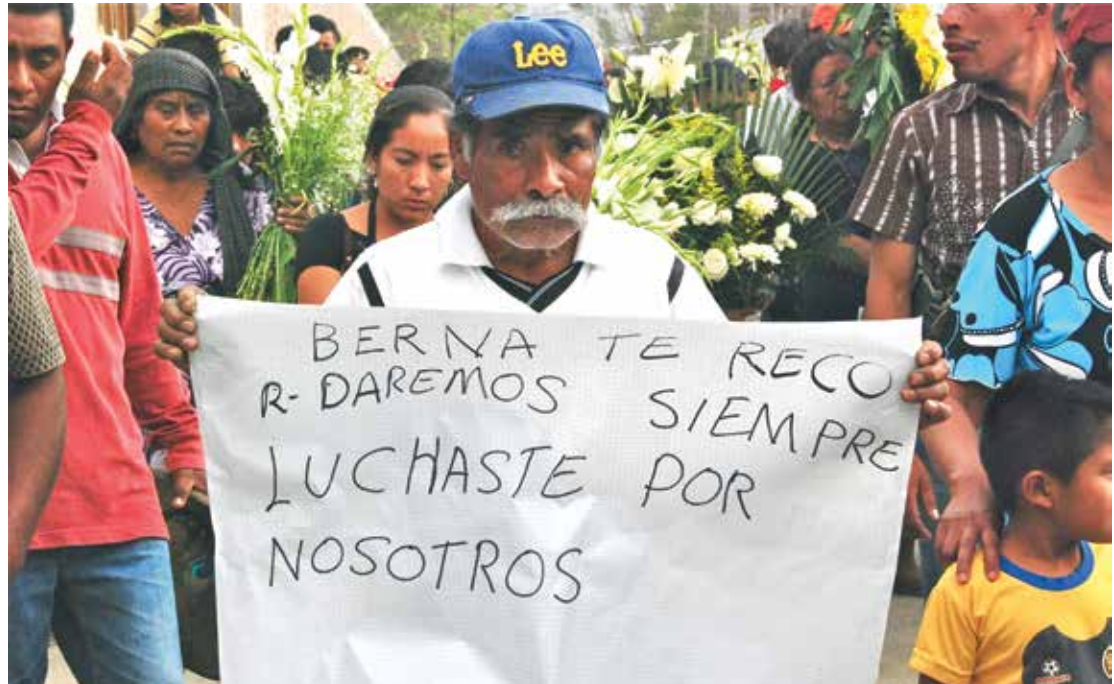 Lee
BERNA TE RECO
R-DAREMOS SIEMPRE
LUCHASTE POR
NOSOTROS